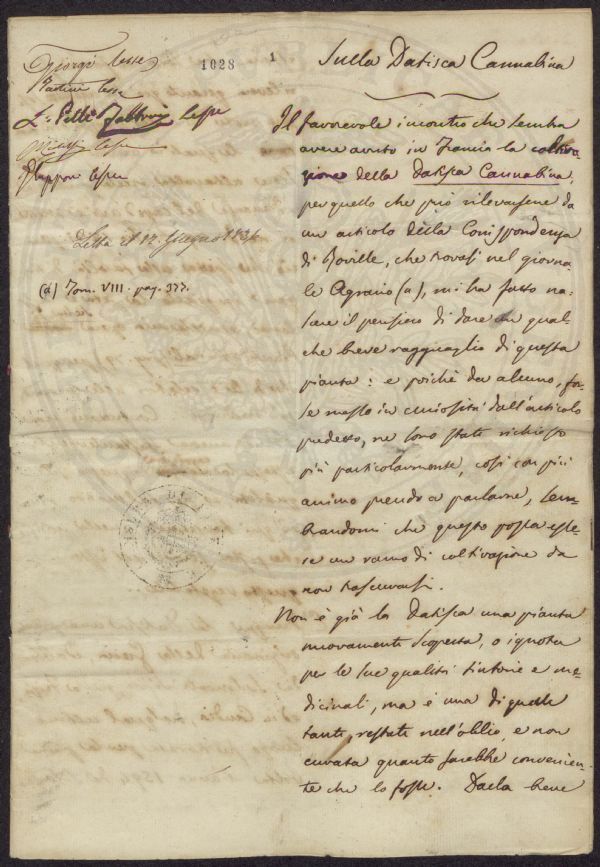 Giorgi lesse
lesse
1028
1
L. Pelli Fabbroni lesse
lesse
Lapponi lesse
Letta il 12. Giugno 1836
(a) Tom. VIII. pag. 377.
Sulla Datisca Cannabina
Il favorevole incontro che sembra
avere avuto in Francia la coltiva-
zione della Datisca Cannabina,
per quello che può rilevarsene da
un articolo della Corrispondenza
di Roville, che trovasi nel giorna-
le Agrario (a), mi ha fatto na-
scere il pensiero di dare un qual-
che breve ragguaglio di questa
pianta: e poichè da alcuno, for-
se messo in curiosità dall'articolo
predetto, ne sono stato richiesto
più particolarmente, così con più
animo prendo a parlarne, sem-
brandomi che questo possa esse-
se un ramo di coltivazione da
non trascurarsi.
Non è già la Datisca una pianta
nuovamente scoperta, o ignota
per le sue qualità tintorie e me-
dicinali, ma è una di quelle
tante restate nell'oblio, e non
curata quanto sarebbe convenien-
te che lo fosse. Dalla breve